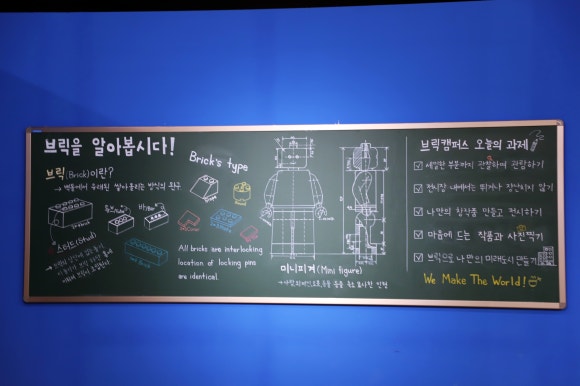 브릭을 알아봅시다!
브릭(Brick)이란?
→ 벽돌에서 유래된 쌓아올리는 방식의 완구
스터드(Stud)
Brick's type
All bricks are interlooking
location of locking pins
are identical.
미니피겨(Mini figure)
브릭캠퍼스 오늘의 과제
세밀한 부분까지 관찰하며 관람하기
전시장 내에서는 뛰거나 장난치지 않기
나만의 창작품 만들고 전시하기
마음에 드는 작품과 사진찍기
브릭으로 나만의 미래도시 만들기
We Make The World!